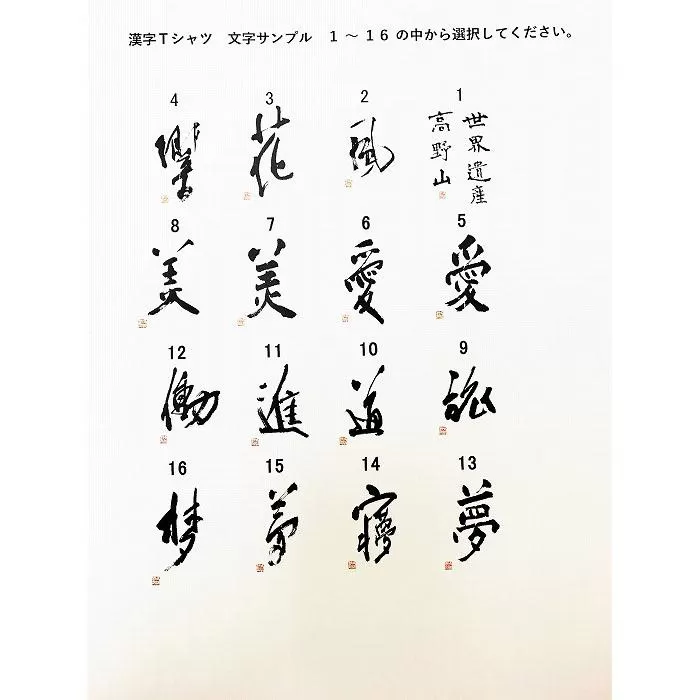 漢字Tシャツ 文字サンプル 1 ～ 16 の中から選択してください。
1
世界遺産
高野山
2
風
3
花
4
響
5
愛
6
愛
7
美
8
美
9
10
道
11
進
12
働
13
夢
14
15
夢
16
梦